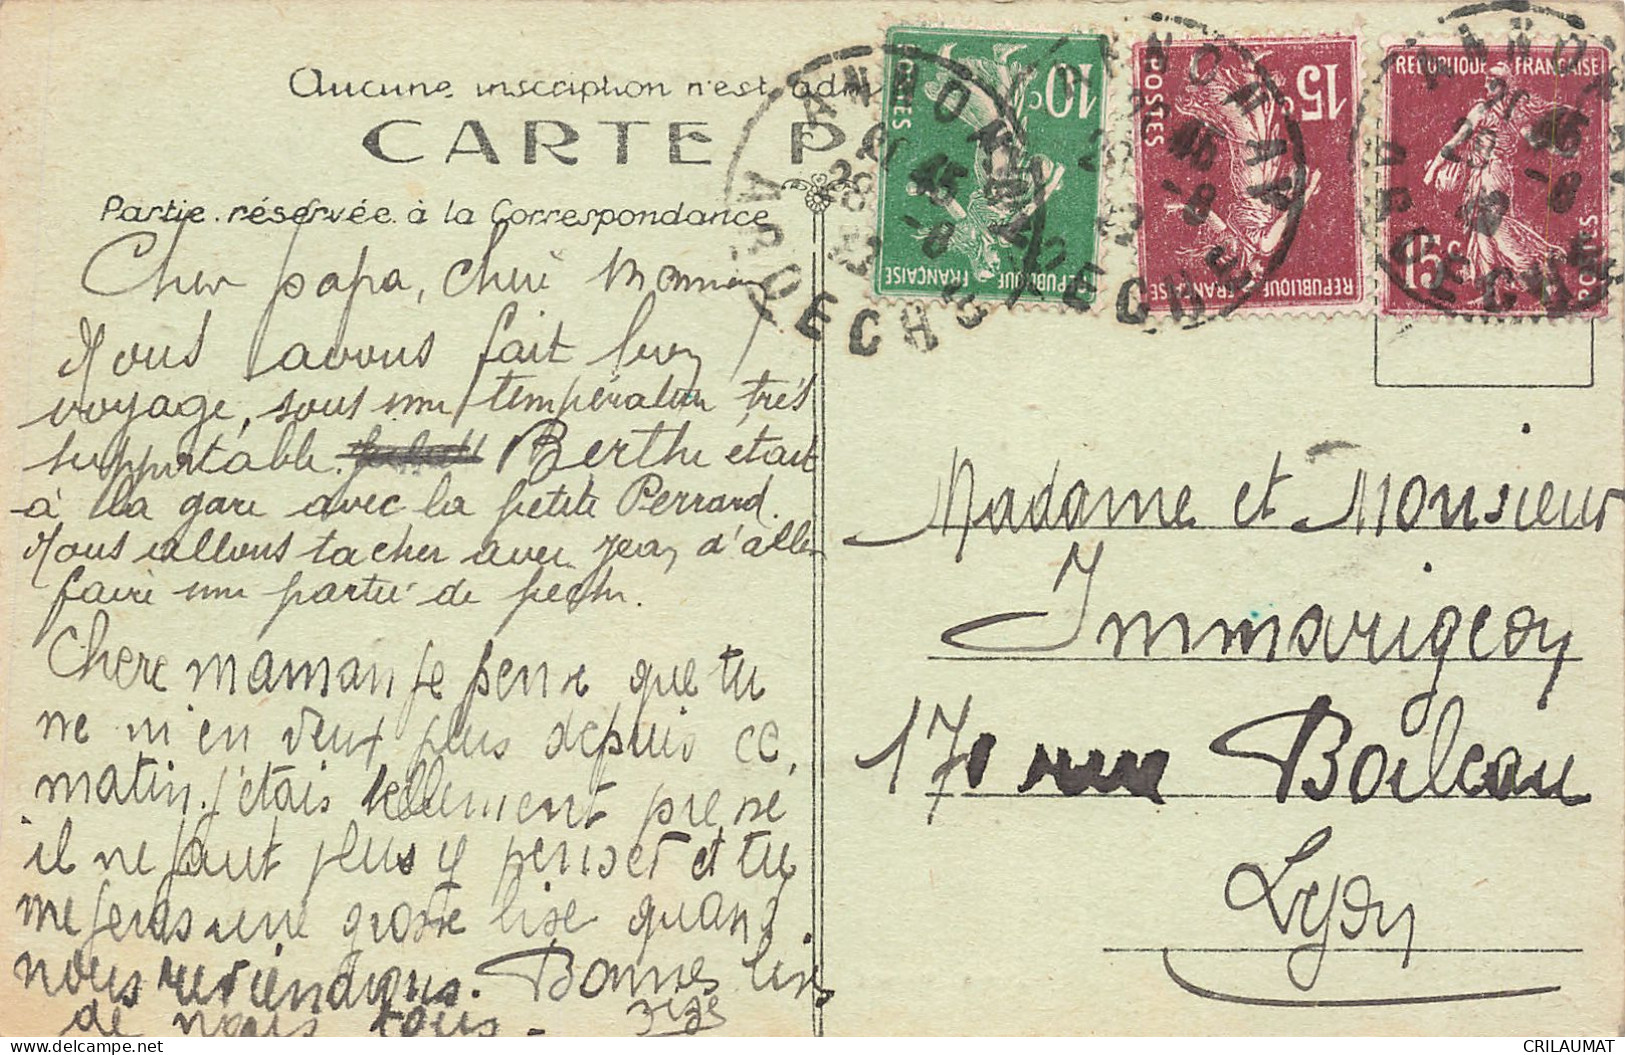 Aucune inscription n'est adm
CARTE PO
Partie réservée à la Correspondance
Cher papa, cheri Maman
Nous avons fait bon
voyage, sous une température très
supportable. Berthe était
à la gare avec la petite Perrard.
Nous allons tacher avec Jean d'aller
faire une partie de peche.
Chere maman je pense que tu
ne m'en veux plus depuis ce
matin. j'étais tellement pressé
il ne faut plus y penser et tu
me feras une grosse bise quand
nous reviendrons. Bonnes bises
de nous tous.
POSTES
10c
REPUBLIQUE FRANÇAISE
POSTES
15c
REPUBLIQUE FRANÇAISE
REPUBLIQUE FRANÇAISE
15c
POSTES
ANNONAY
ARDECHE
Madame et Monsieur
Immarigeon
170 rue Boileau
Lyon
CRILAUMAT